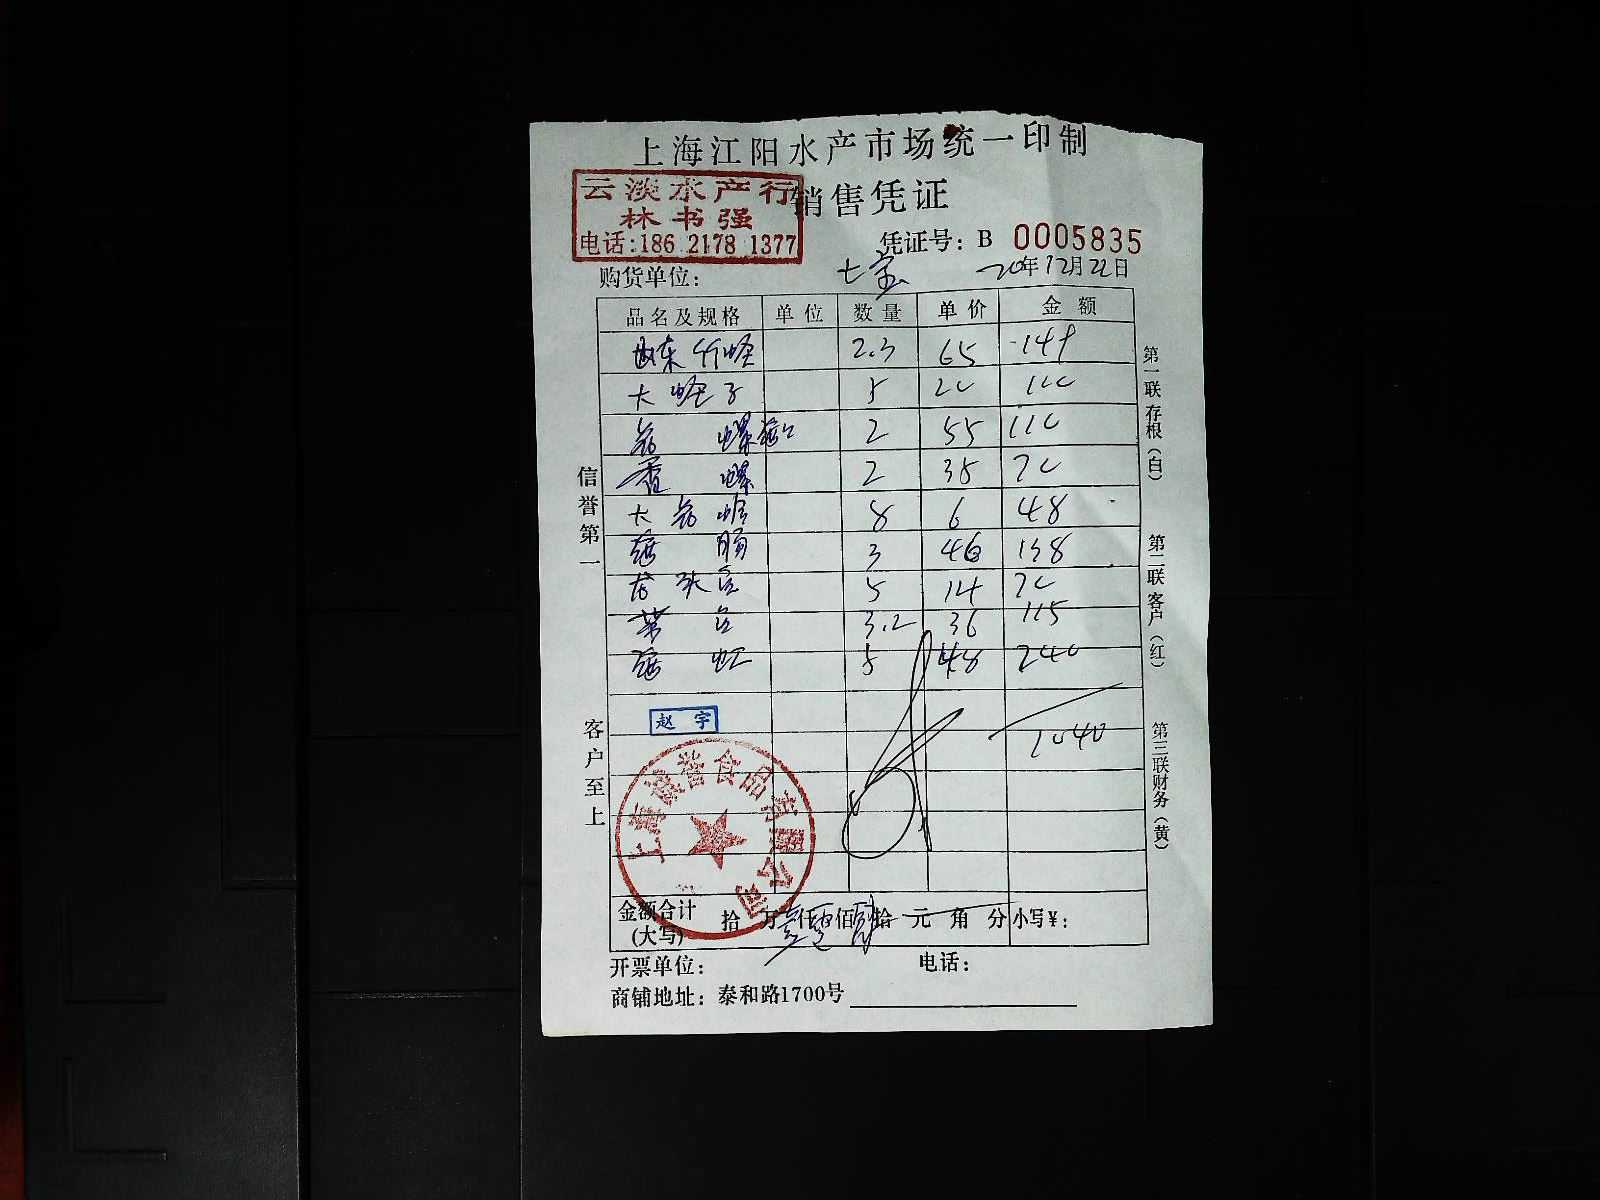 上海江阳水产市场统一印制
云淡水产行
林书强
电话:186 2178 1377
销售凭证
凭证号: B 0005835
购货单位: 七宝 20年12月22日
品名及规格 单位 数量 单价 金额
山东竹蛏 2.3 65 149
大蛏子 5 20 100
螺 2 55 110
香螺 2 35 70
大 蛤 8 6 48
海肠 3 46 138
龙头 5 14 70
3.2 36 115
海虹 5 48 240
1040
赵宇
上海 誉食品有限公司
金额合计(大写) 拾 万 仟 佰 拾 元 角 分 小写¥:
开票单位: 电话:
商铺地址: 泰和路1700号
信誉第一
客户至上
第一联存根(白)
第二联客户(红)
第三联财务(黄)